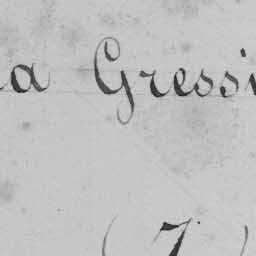 a Gressi
( 7 )